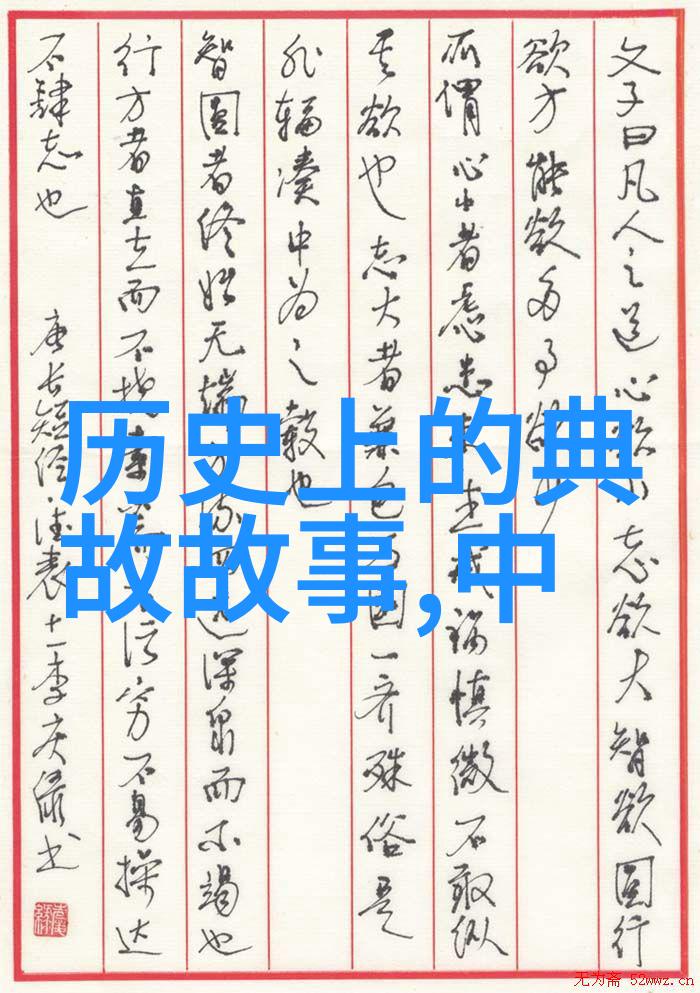 文子曰凡人之道心欲小志欲大智欲圆行
欲方能欲多事欲少
所谓心小者虑患未生戒祸慎微不敢纵
其欲也志大者兼包万国一齐殊俗是
非辐凑中为之毂也
智圆者终始无端方流四远深泉而不竭也
行方者直立而不挠素不污穷不易操达
不肆志也
唐长短经·德表十一李庆书
历史上的典
故故事,中
无为斋 52wwz.cn